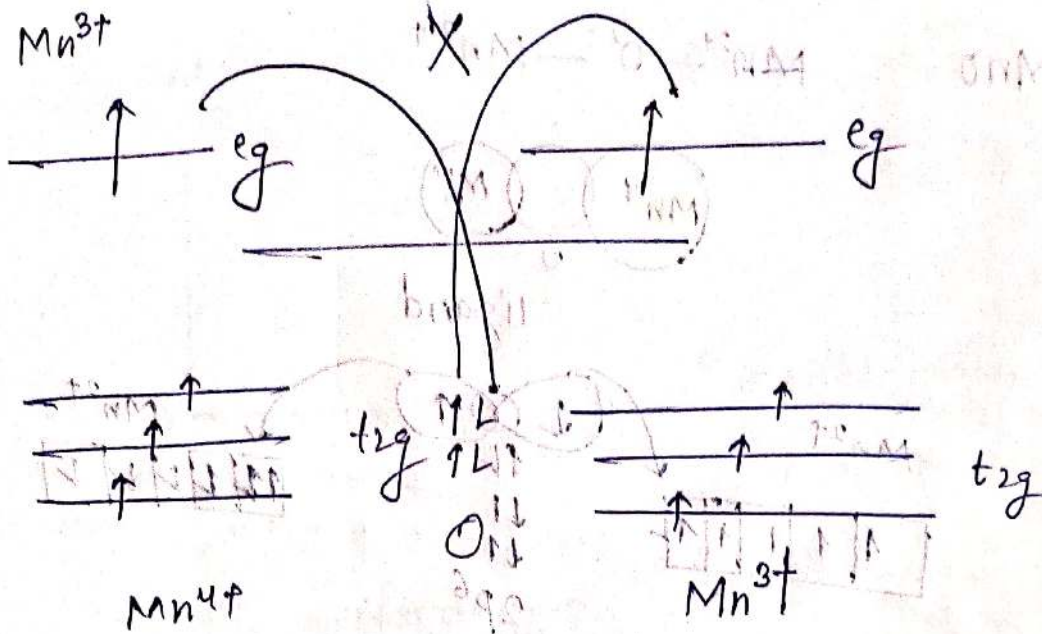 Mn³⁺ X
eg eg
t₂g ↑↓ t₂g
↑↓
O
Mn⁴⁺ Mn³⁺